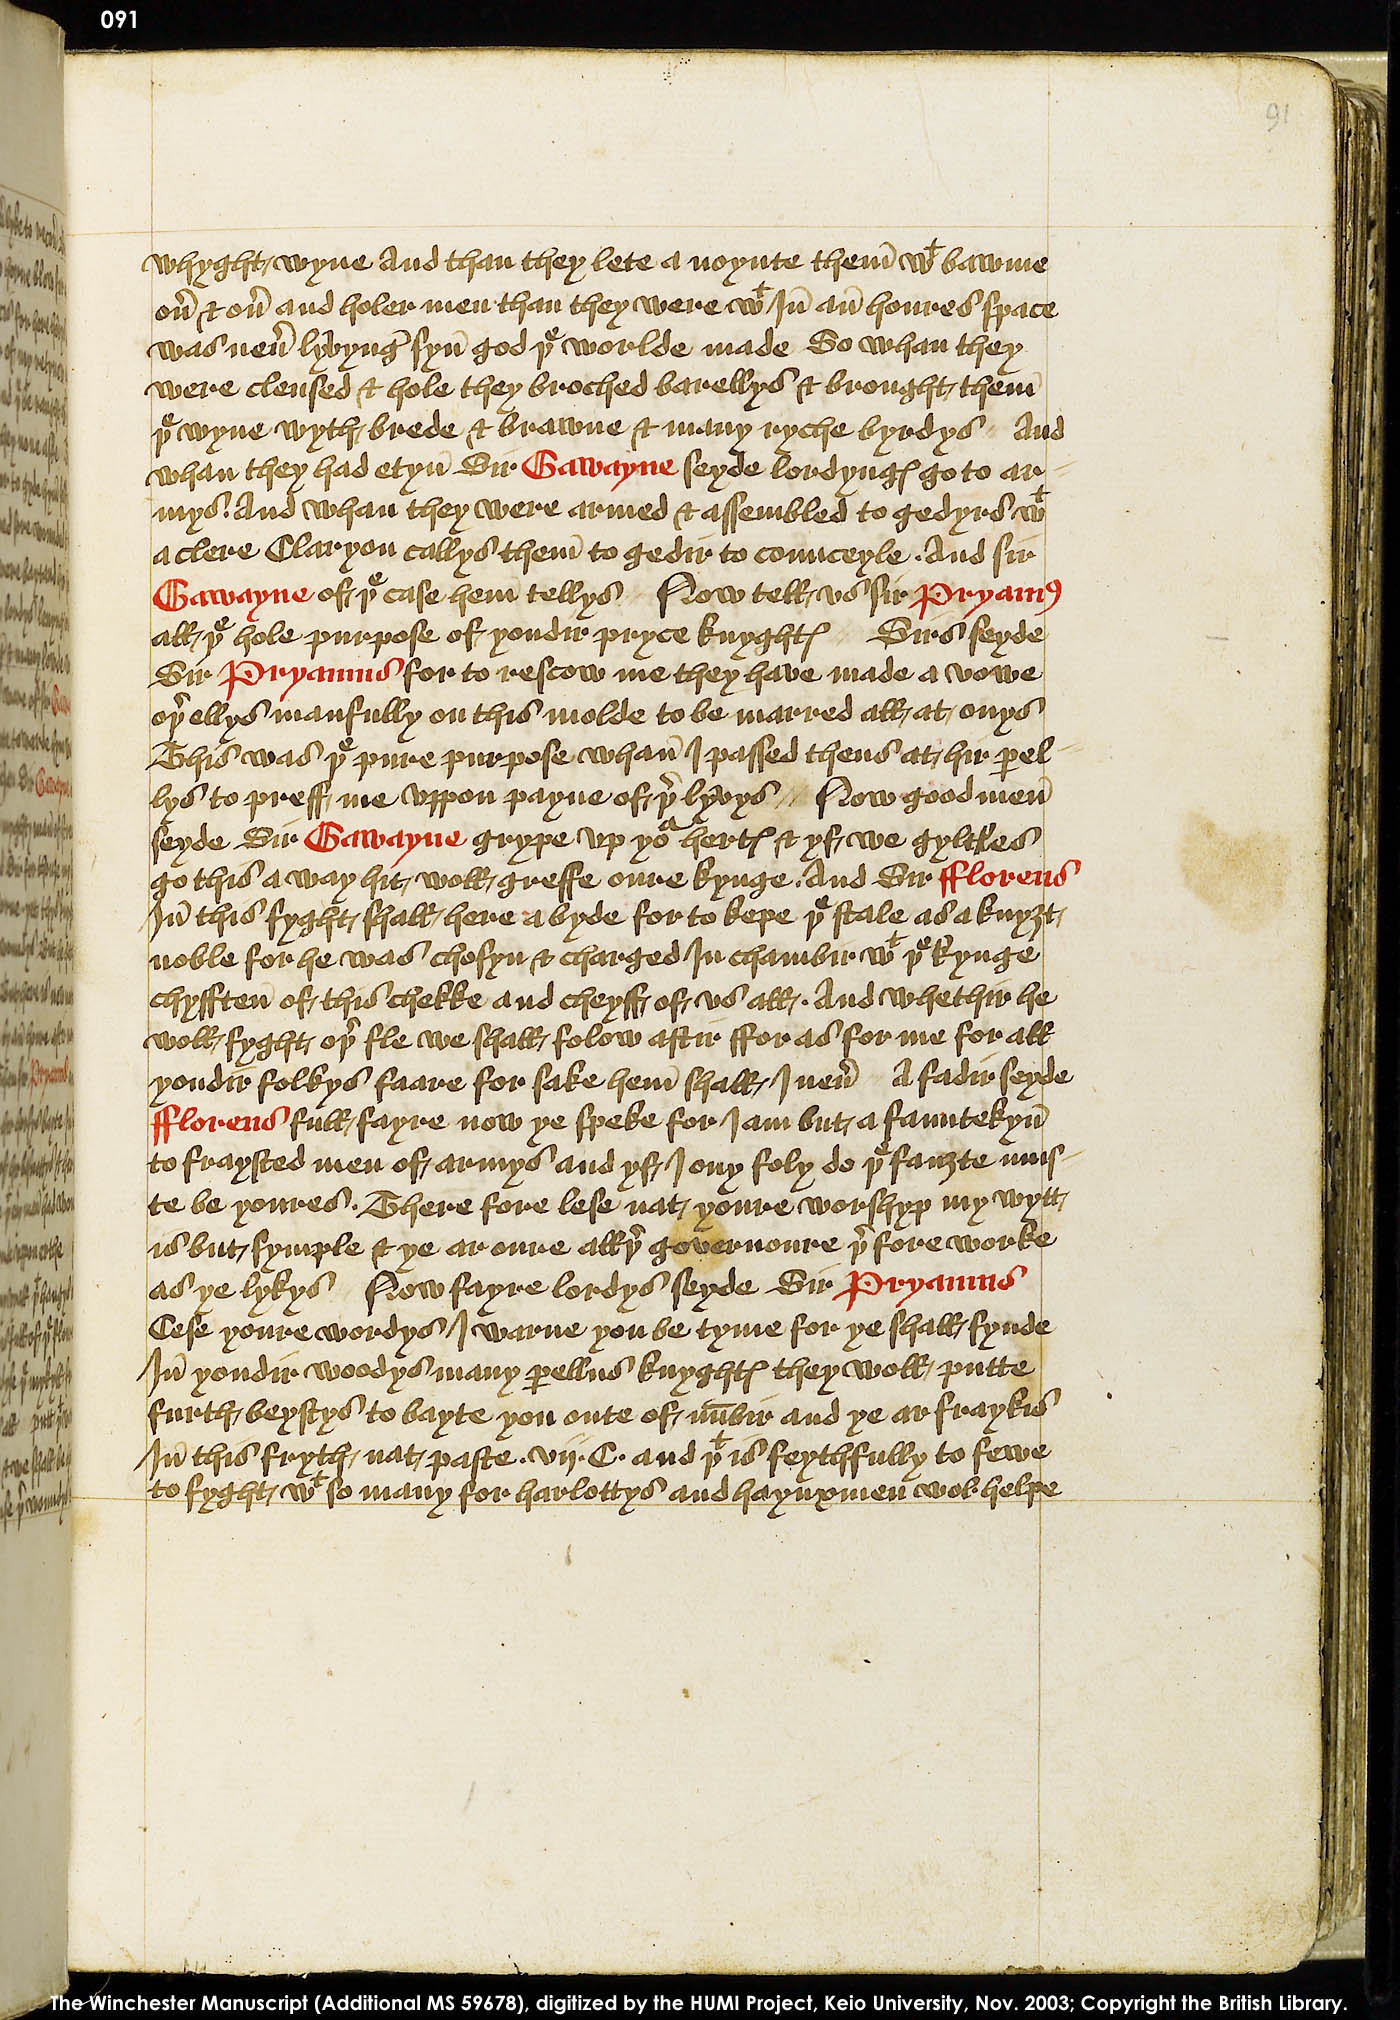 091
91
whyght wyne And than they lete a noynte them̄ wͭ bawme
ou̓ & ou̓ and holer men than they were wͭ Jn̄ an̄ houres space
was neu̓ lyvynḡ syn̄ god þͤ worlde made So whan they
were clensed & hole they broched barellys & brought them̄
þͤ wyne wyth brede & brawne & many ryche byrdys And
whan they had etyn̄ Sir Gawayne seyde lordyngꝭ go to ar-
mys. And whan they were armed & assembled to gedyrs wͭ
a clere Claryon callys them̄ to gedir to counceyle. And sir
Gawayne of þͤ case hem̄ tellys // Now telle vs sir Pryamꝰ
all þͤ hole purpose of yondir pryce knyghtꝭ // Sirs seyde
Sir Pryamus for to rescow me they have made a vowe
oþ̓ ellys manfully on this molde to be marred all at onys
This was þͤ pure purpose whan̄ J passed thens at hir ꝑel-
lys to preff me vppon payne of þ̓ lyvys // Now good men̄
seyde Sir Gawayne grype vp yoͬ hertꝭ & yf we gyltles
go this a way hit woll greffe oure kynge. And Sir fflorens
Jn̄ this fyght shall here a byde for to kepe þͤ stale as a knyȝt
noble for he was chosyn & charged Jn chambir wͭ þͤ kynge
chyfften̄ of this chekke and cheyff of vs all. And whethir he
woll fyght oþ̓ fle we shall folow aftir ffor as for me for all
yondir folkys faare for sake hem̄ shall J neu̓ // A fadir seyde
fflorens full fayre now ye speke for J am but a fauntekyn̄
to fraysted men of armys and yf J ony foly do þͤ fauȝte mus-
te be youres. There fore lese nat youre worshyp my wytt
is but symple & ye ar oure allþ̓ governoure þ̓ fore worke
as ye lykys // Now fayre lordys seyde Sir Pryamus
Cese youre wordys J warne you be tyme for ye shall fynde
Jn̄ yondir woodys many ꝑellus knyghtꝭ they woll putte
furth beystys to bayte you oute of nūbir and ye ar fraykis
Jn̄ this fryth nat paste .vij. C. and þͭ is feythfully to fewe
to fyght wͭ so many for harlottys and haynxmen wol helpe
The Winchester Manuscript (Additional MS 59678), digitized by the HUMI Project, Keio University, Nov. 2003; Copyright the British Library.